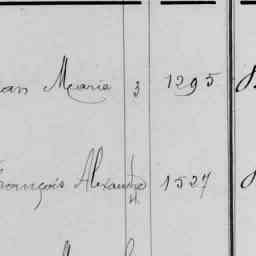 Marie 3 1295
François Alexandre 4 1527